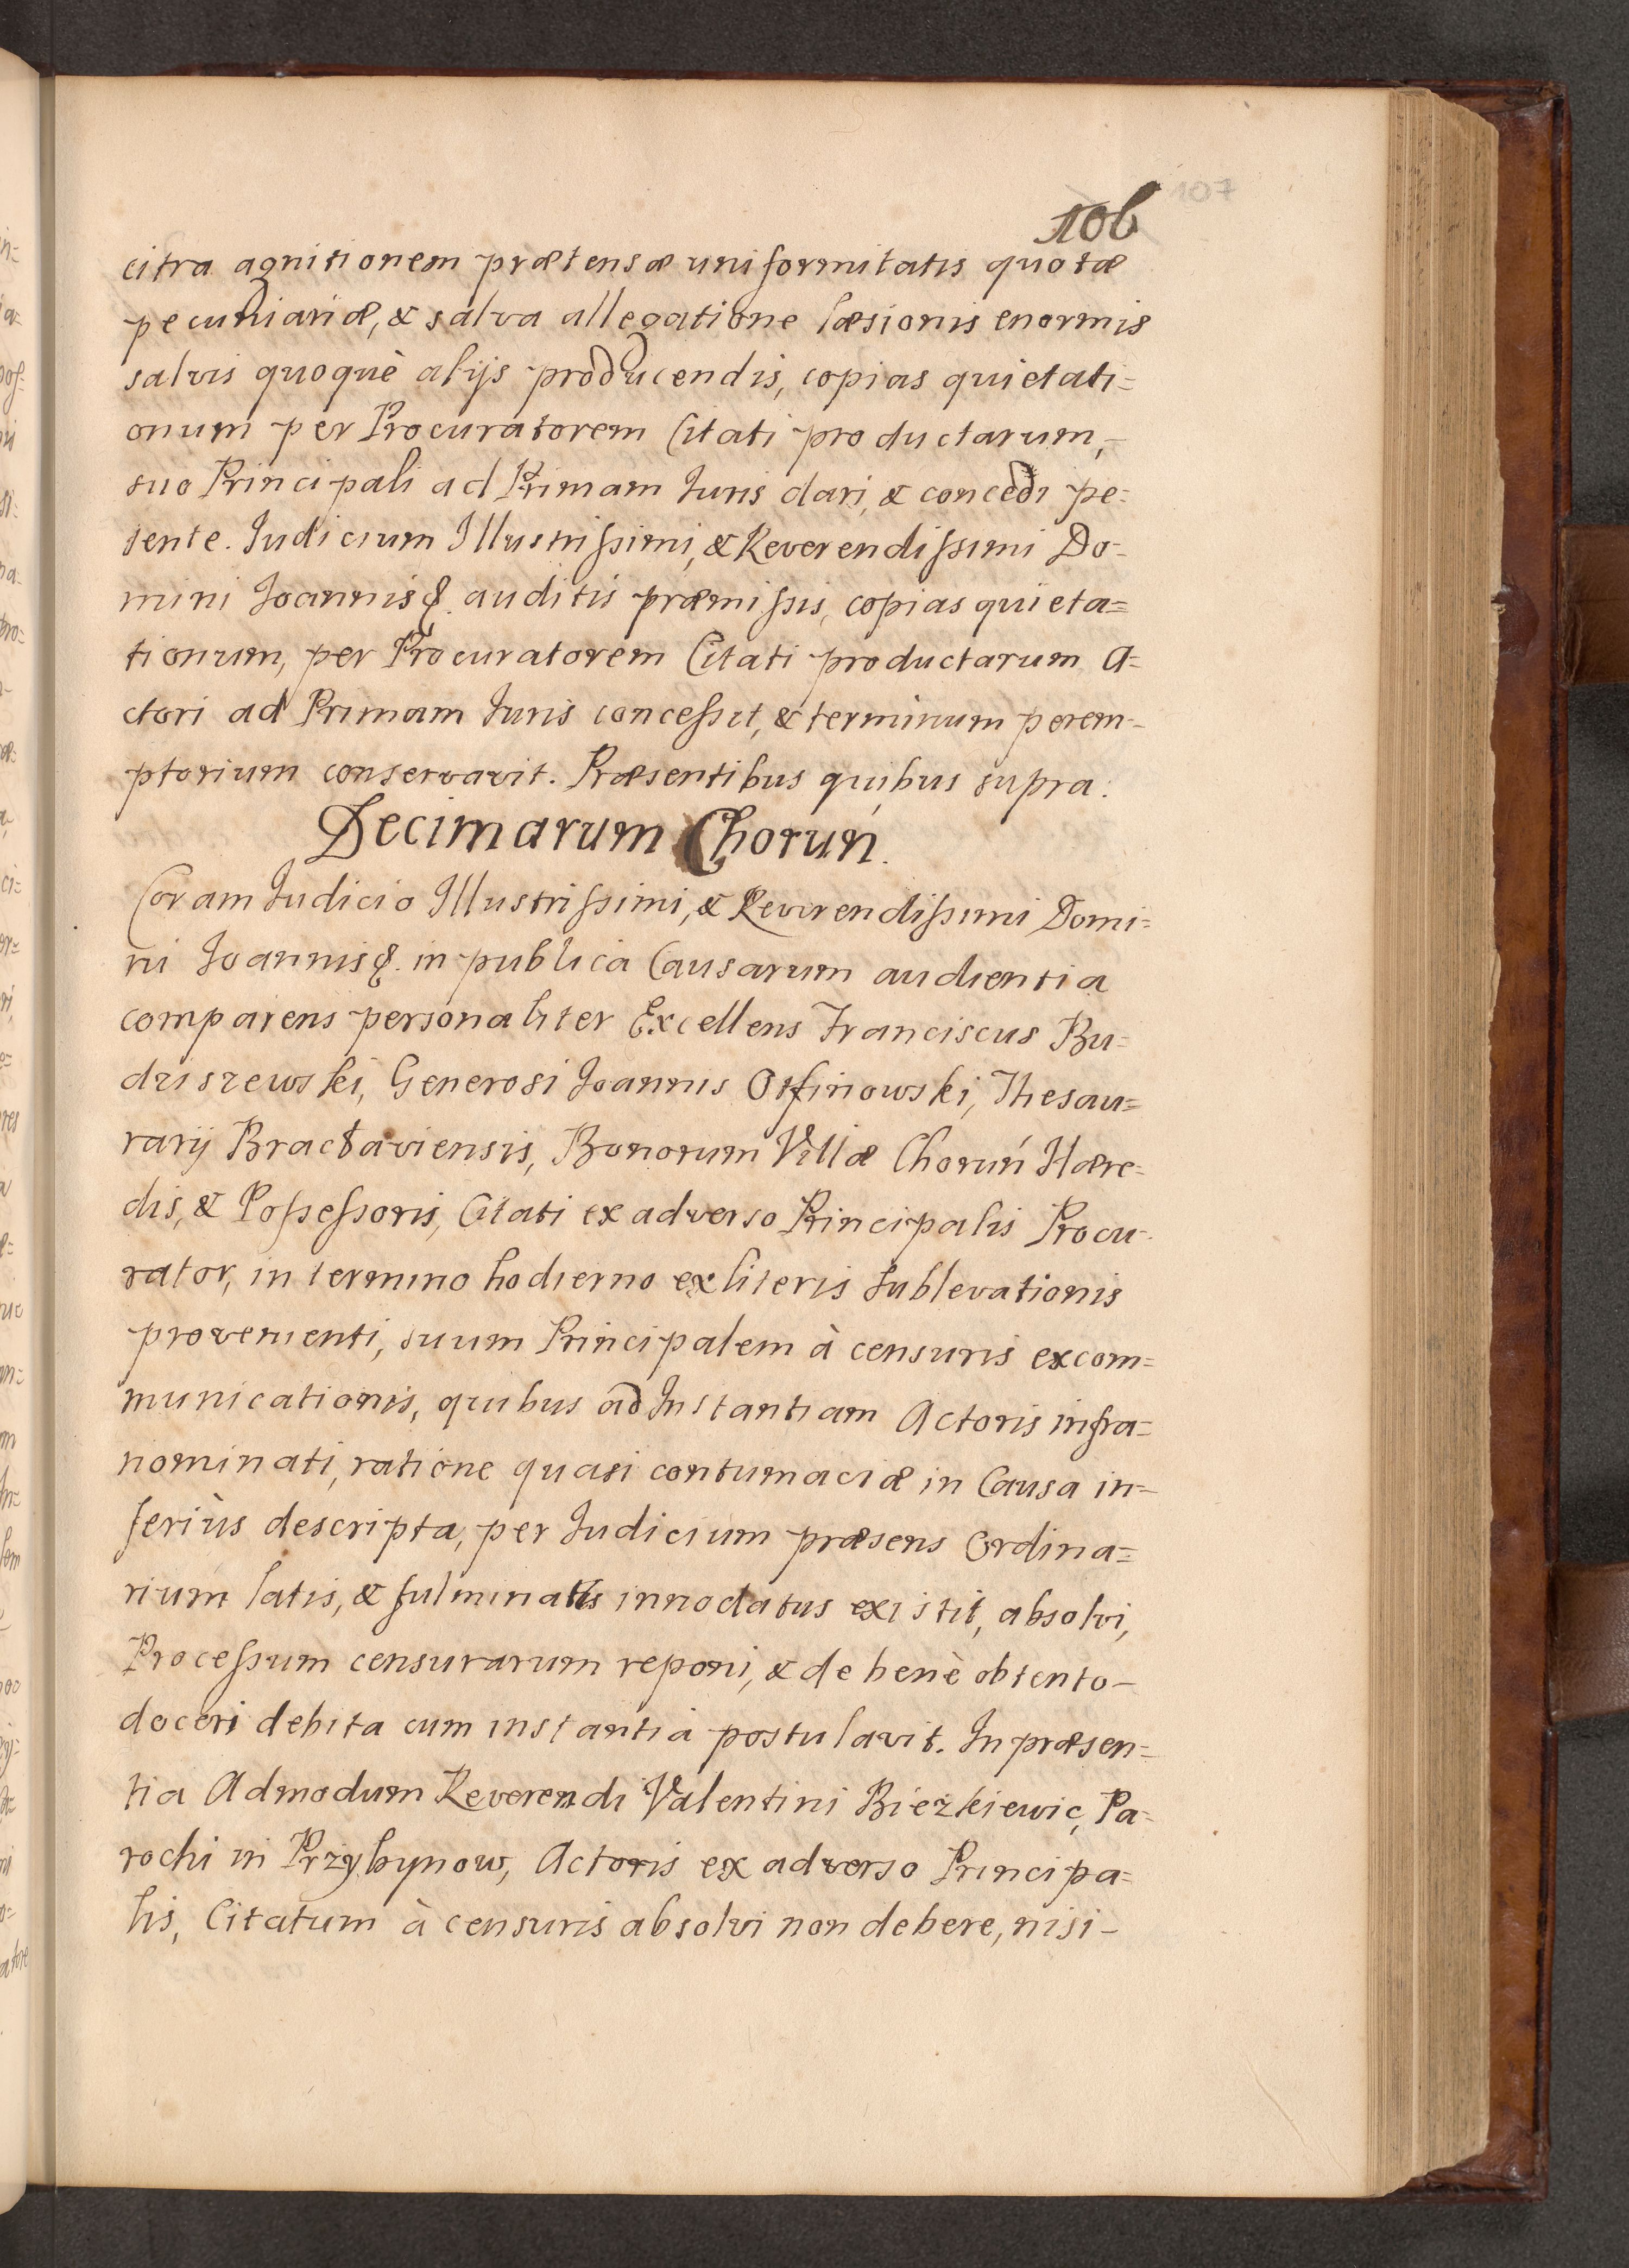 107
106
citra agnitionem prætensæ uniformitatis quotæ
pecuniariæ, & salva allegatione læsionis enormis
salvis quoquè alijs producendis, copias quietati=
onum per Procuratorem Citati productarum,-
suo Principali ad Primam Iuris dari, & concedi pe=
tente. Iudicium Illustrissimi, & Reverendissimi Do-
mini Joannis &. auditis præmissis, copias quieta=
tionum, per Procuratorem Citati productarum A=
ctori ad Primam Iuris concessit, & terminum perem-
ptorium conservavit. Præsentibus quibus supra.
Decimarum Choruń.
Coram Iudicio Illustrissimi, & Reverendissimi Domi=
ni Joannis &. in publica Causarum audientia
comparens personaliter Excellens Franciscus Bu=
driszewski, Generosi Joannis Otfinowski, Thesau=
rarij Bractaviensis, Bonorum Villæ Choruń Hære=
dis, & Possessoris, Citati ex adverso Principalis Procu-
rator, in termino hodierno ex literis sublevationis
provenienti, suum Principalem à censuris excom=
municationis, quibus ad Instantiam Actoris infra=
nominati, ratione quasi contumaciæ in Causa in-
feriùs descripta, per Iudicium præsens Ordina=
rium latis, & fulminatis innodatus existit, absolvi,
Processum censurarum reponi, & de benè obtento-
doceri debita cum instantia postulavit. In præsen=
tia Admodum Reverendi Valentini Bieżkiewic, Pa-
rochi in Przybynow, Actoris ex adverso Principa=
lis, Citatum à censuris absolvi non debere, nisi-